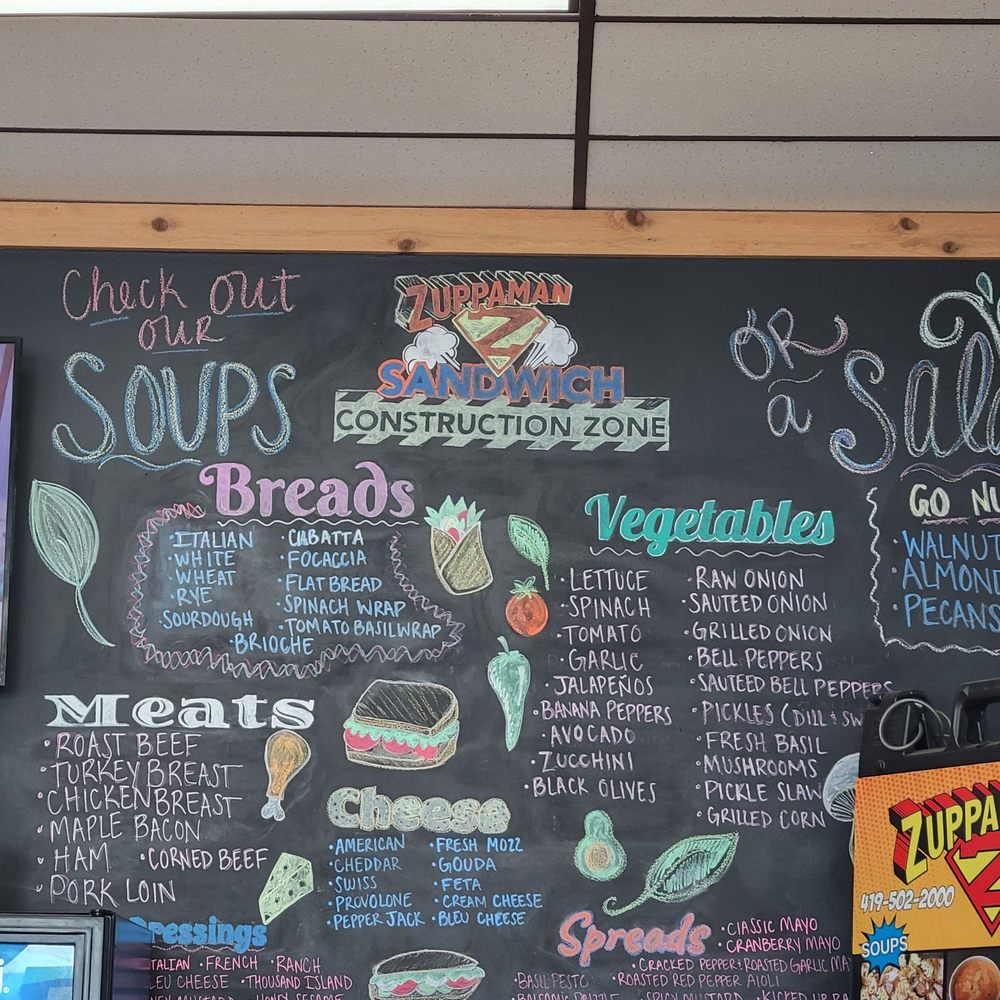 Check out
our
SOUPS
ZUPPAMAN
SANDWICH
CONSTRUCTION ZONE
OR
a
Breads
·ITALIAN
·WHITE
·WHEAT
·RYE
·SOURDOUGH
·CIABATTA
·FOCACCIA
·FLAT BREAD
·SPINACH WRAP
·TOMATO BASIL WRAP
·BRIOCHE
Vegetables
·LETTUCE
·SPINACH
·TOMATO
·GARLIC
·JALAPEÑOS
·BANANA PEPPERS
·AVOCADO
·ZUCCHINI
·BLACK OLIVES
·RAW ONION
·SAUTEED ONION
·GRILLED ONION
·BELL PEPPERS
·SAUTEED BELL PEPPERS
·PICKLES (DILL &
·FRESH BASIL
·MUSHROOMS
·PICKLE SLAW
·GRILLED CORN
GO
·WALNUT
·ALMOND
·PECANS
Meats
·ROAST BEEF
·TURKEY BREAST
·CHICKEN BREAST
·MAPLE BACON
·HAM ·CORNED BEEF
·PORK LOIN
Cheese
·AMERICAN
·CHEDDAR
·SWISS
·PROVOLONE
·PEPPER JACK
·FRESH MOZZ
·GOUDA
·FETA
·CREAM CHEESE
·BLEU CHEESE
ressings
TALIAN ·FRENCH ·RANCH
LEU CHEESE ·THOUSAND ISLAND
HONEY SESAME
Spreads
·CLASSIC MAYO
·CRANBERRY MAYO
·CRACKED PEPPER & ROASTED GARLIC MA
·BASIL PESTO ·ROASTED RED PEPPER AIOLI
SPICY MUSTARD ·KICKED UP
ZUPPA
419-502-2000
SOUPS